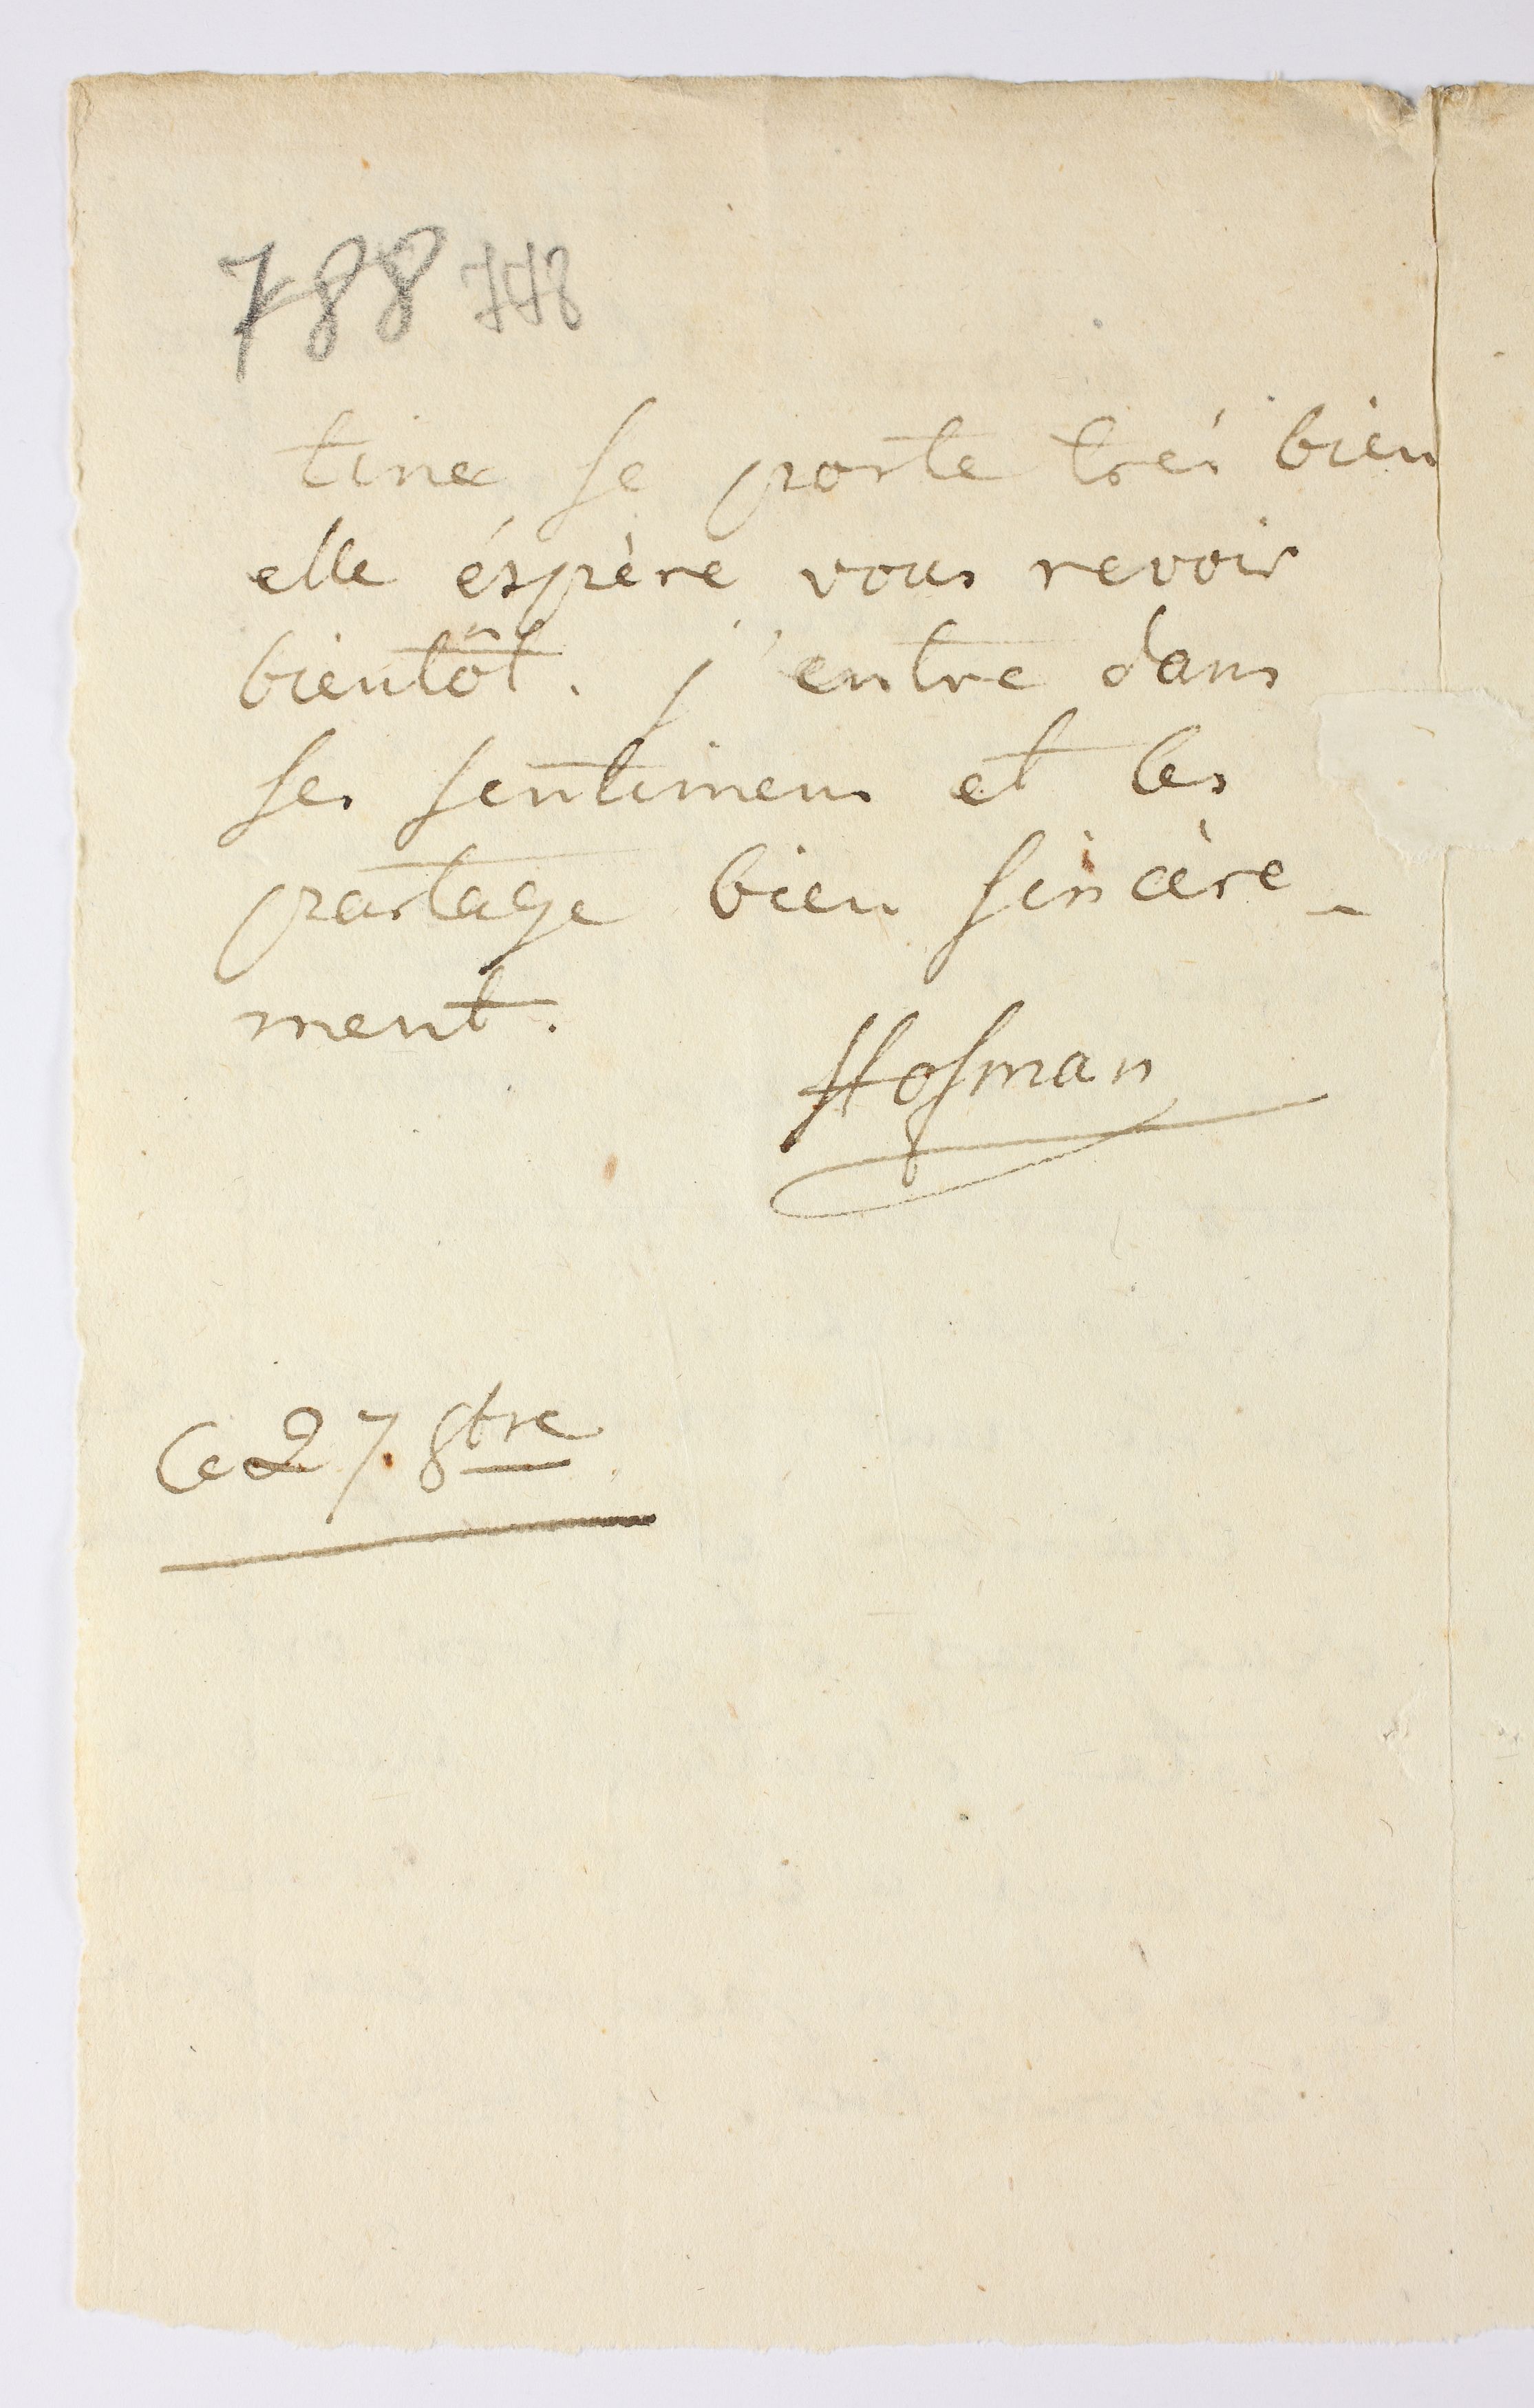 788 778
tine se porte très bien
elle éspère vous revoir
bientôt. j'entre dans
ses sentimens et les
partage bien sincère-
ment.
Hofman
Ce 27 8tre